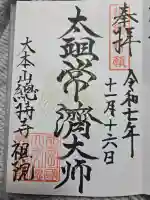 奉拝
令和七年
十一月十六日
太祖常済大师
大本山總持寺祖院